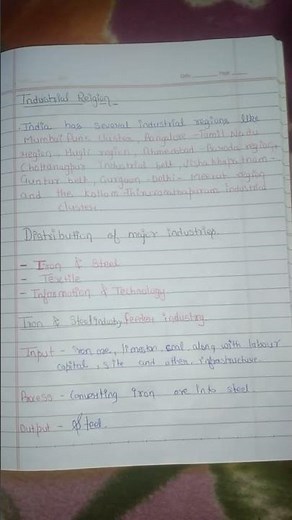 Industrial Religion
- India has several industrial regions like
Mumbai Pune Cluster, Banglore - Tamil Nadu
region, Hugli region, Ahmedabad - Baroda region,
Chottanagpur industrial belt, Vishakhapatnam -
Guntur belt Gurgaon - Delhi - Meerut region
and the Kollam - Thiruvanathapuram industrial
cluster.
Distribution of major industries
- Iron & Steel
- Textile
- Information & Technology
Iron & Steel industry feeder industry
Input - Iron ore, limeston, coal along with labour
capital, site and other infrastructure
Process - Converting iron ore into steel
Output - Steel